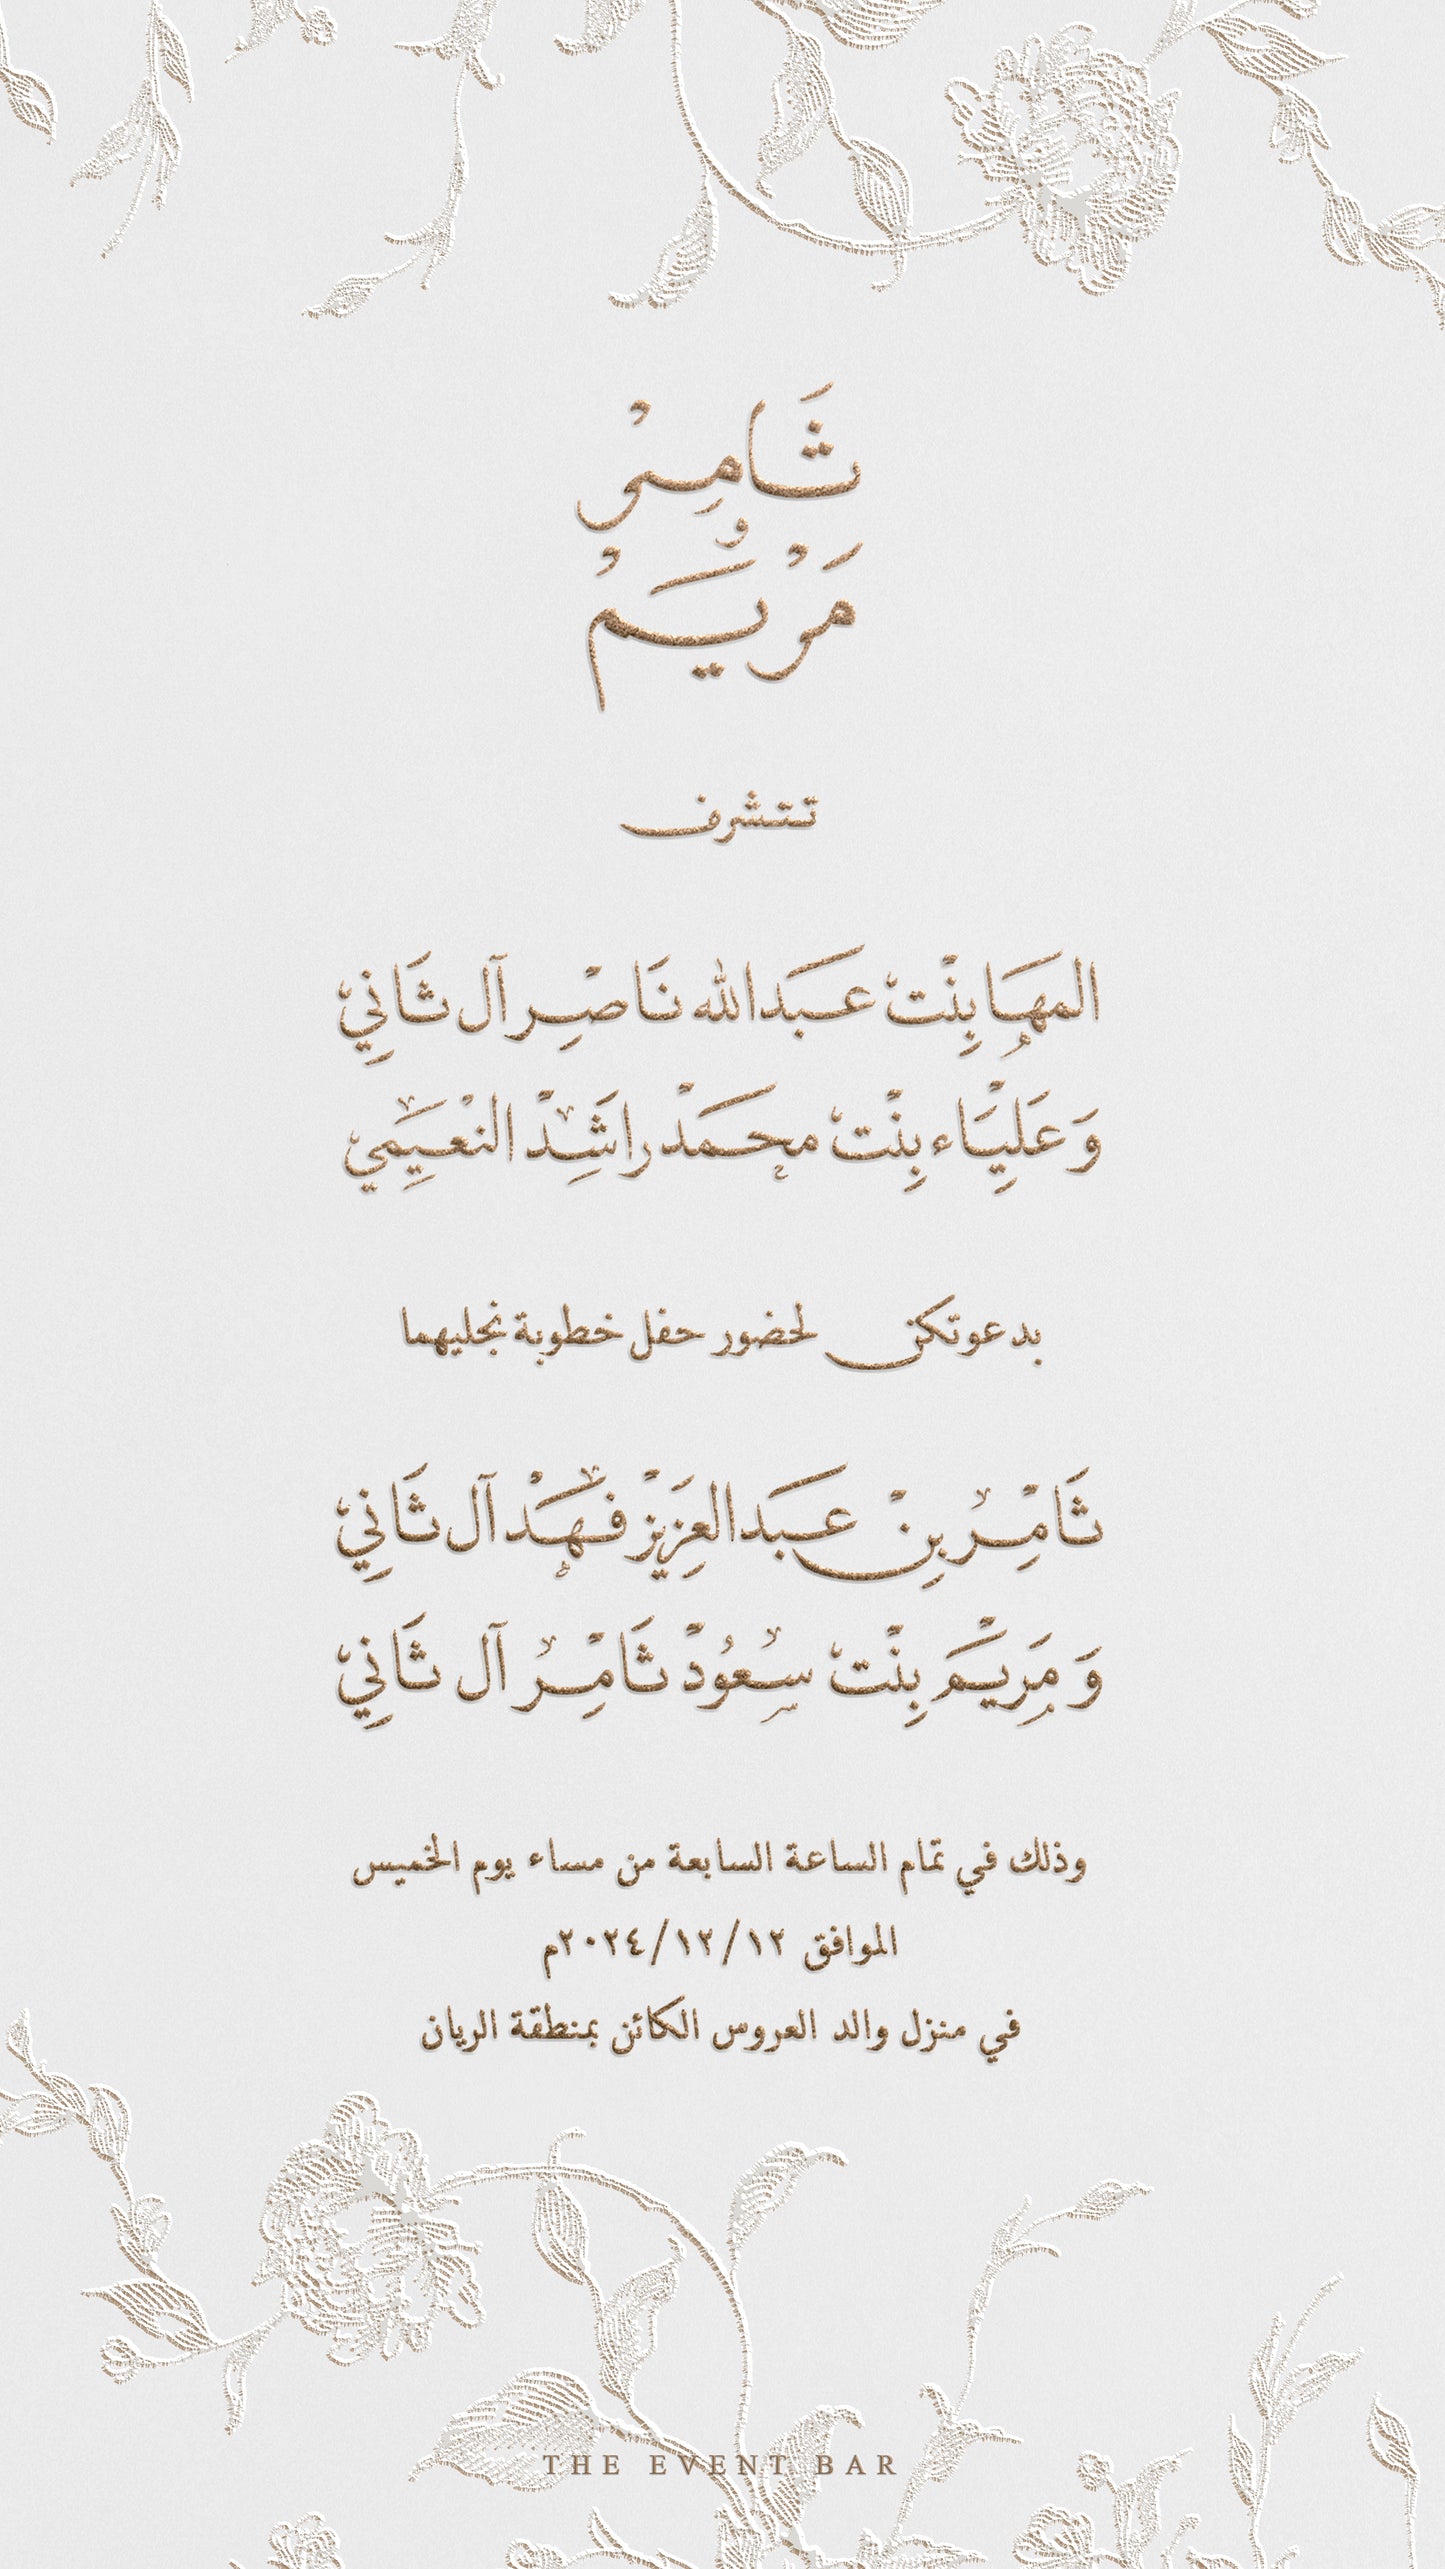 ثَامِرْ
و
مَرْيَمْ
تتشرف
المهَا بِنْتْ عَبَدالله نَاصْر آل ثَانِيْ
وَعَلْيَاء بِنْتْ محَمَدْ راشَدْ النْعَيمِيْ
بدعوتكن لحضور حفل خطوبة نجليهما
ثَامِرْ بِنْ عَبدالعَزِيزْ فَهَدْ آل ثَانِيْ
وَ مَرِيَمْ بِنْتْ سعُودْ ثَامْر آل ثَانِيْ
وذلك في تمام الساعة السابعة من مساء يوم الخميس
الموافق ١٢/١٢/٢٠٢٤م
في منزل والد العروس الكائن بمنطقة الريان
THE EVENT BAR